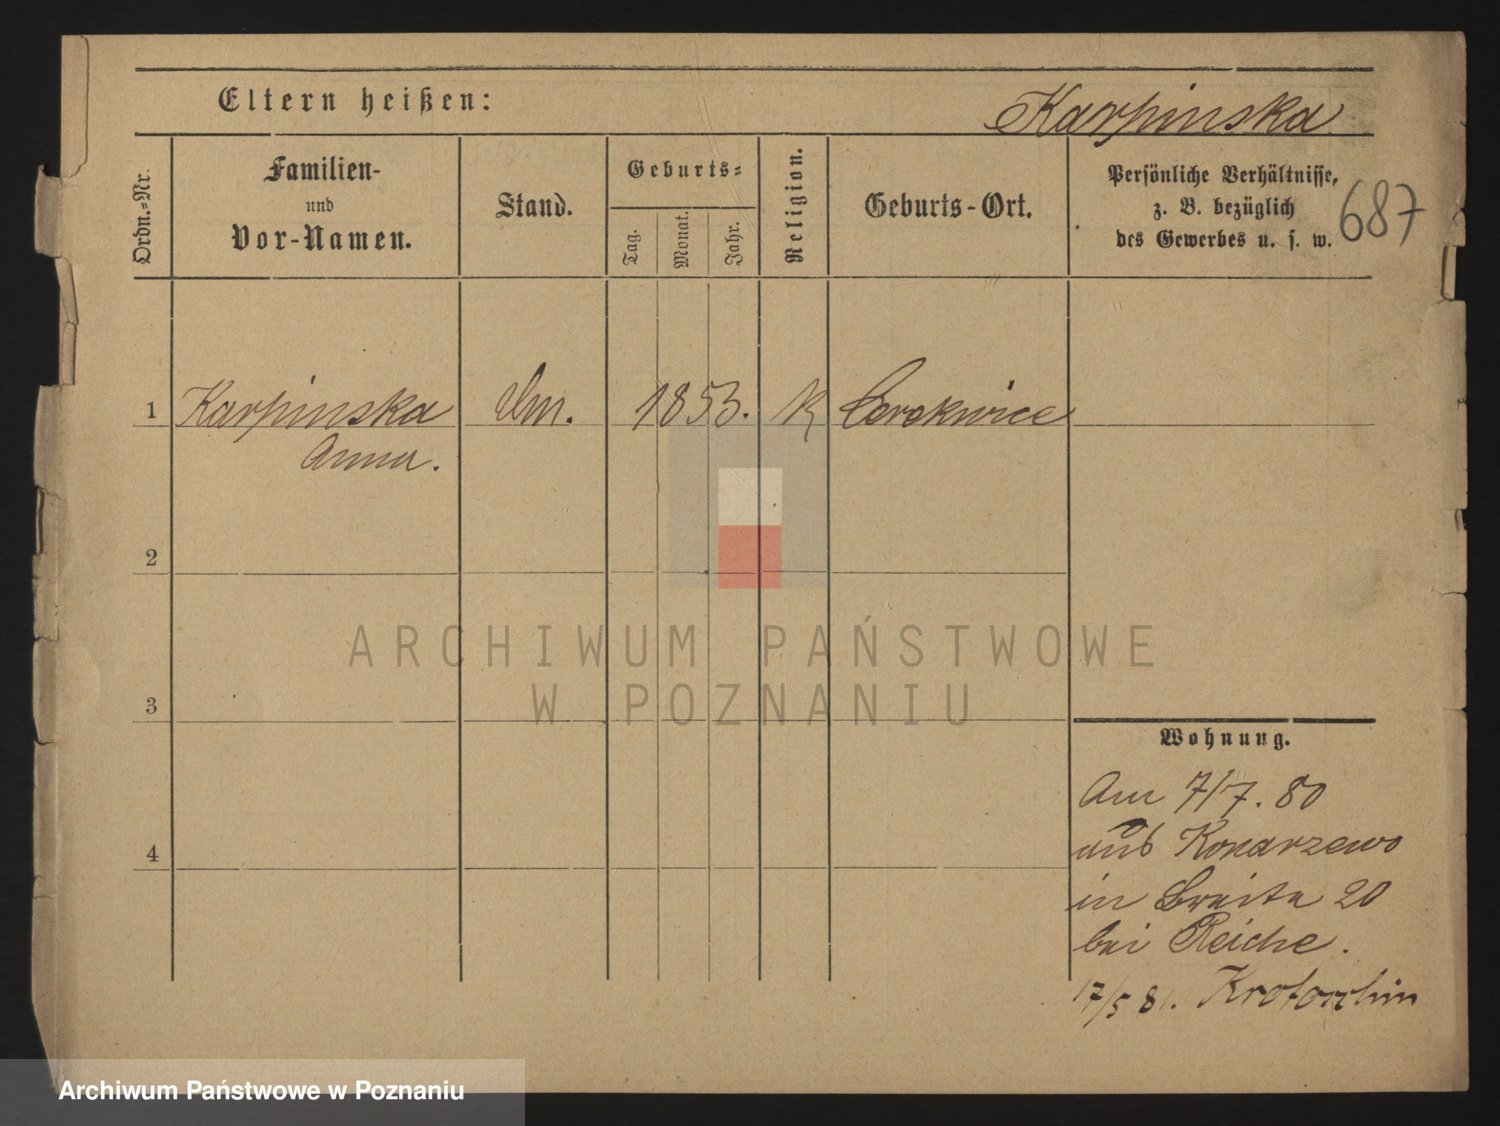 Eltern heißen:
Karpinska
Ordn.=Nr.
Familien-
und
Vor-Namen.
Stand.
Geburts=
Tag.
Monat.
Jahr.
Religion.
Geburts-Ort.
Persönliche Verhältnisse,
z. B. bezüglich
des Gewerbes u. s. w.
687
1 Karpinska 1853. K Cerekwice
Anna.
2
3
4
ARCHIWUM PAŃSTWOWE
W POZNANIU
Wohnung.
Am 7/7. 80
aus Konarzewo
in Breite 20
bei Reiche.
17/5 81. Krotoschin
Archiwum Państwowe w Poznaniu